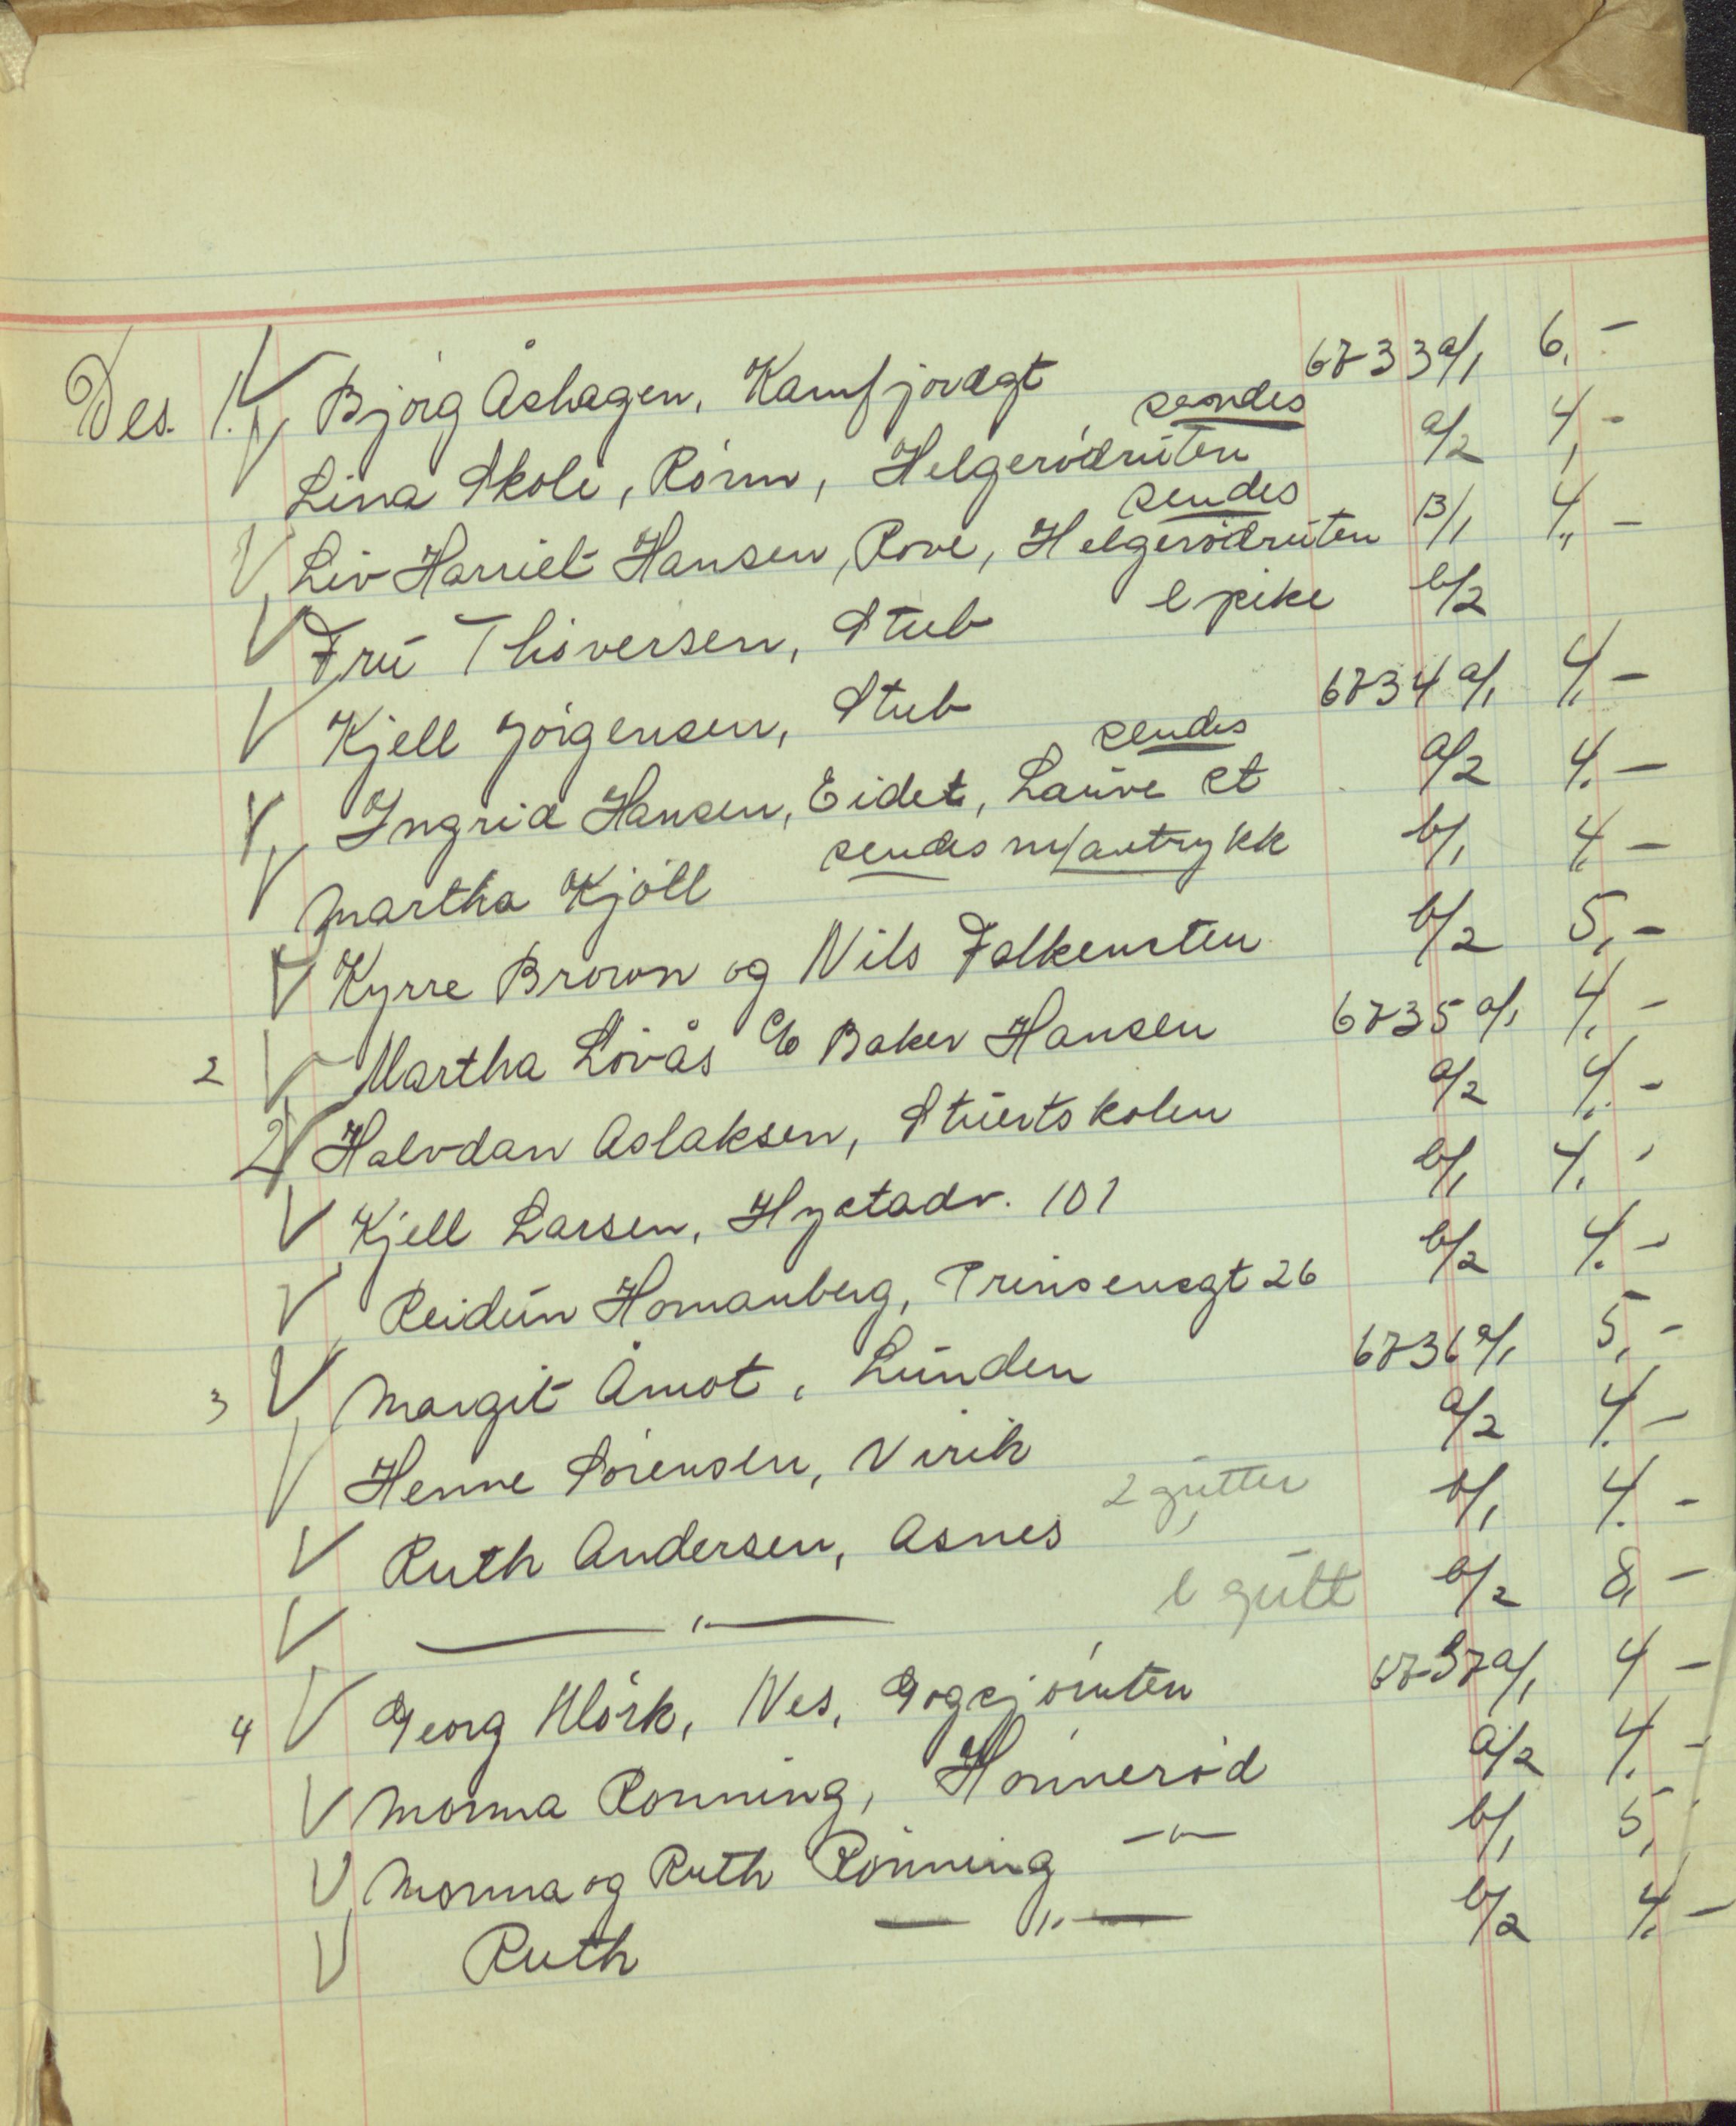 Des. 1. V Bjørg Åshagen, Kamfjordgt 6733 a/1 6,-
V Lina Skoli, Rönn, Helgerödruten sendes a/2 4,-
V Liv Harriet Hansen, Rove, Helgerödruten sendes B/1 4,-
V Fru Th. Iversen, Stub 1 pike b/2
V Kjell Jörgensen, Stub 6734 a/1 4,-
V Ingrid Hansen, Eidet, Lauve st sendes a/2 4.-
V Martha Kjöll sendes m/avtrykk b/1 4,-
V Kyrre Brown og Nils Falkensten b/2 5,-
2 V Martha Lövås c/o Baker Hansen 6735 a/1 4,-
2 V Halvdan Aslaksen, Stuertskolen a/2 4,-
V Kjell Larsen, Hystadv. 101 b/1 4,-
V Reidun Homanberg, Prinsensgt 26 b/2 4.-
3 V Margit Åmot, Lunden 6736 a/1 5,-
V Henne Sörensen, Virik a/2 4.-
V Ruth Andersen, Asnes 2 gutter b/1 4.-
V — " — 1 gutt b/2 8,-
4 V Georg Mörk, Ness, Gogsjöruten 6737 a/1 4 -
V Monna Ronning, Hönneröd a/2 4.-
V Monna og Ruth Rönning — " — b/1 5,
V Ruth — " — b/2 4.-